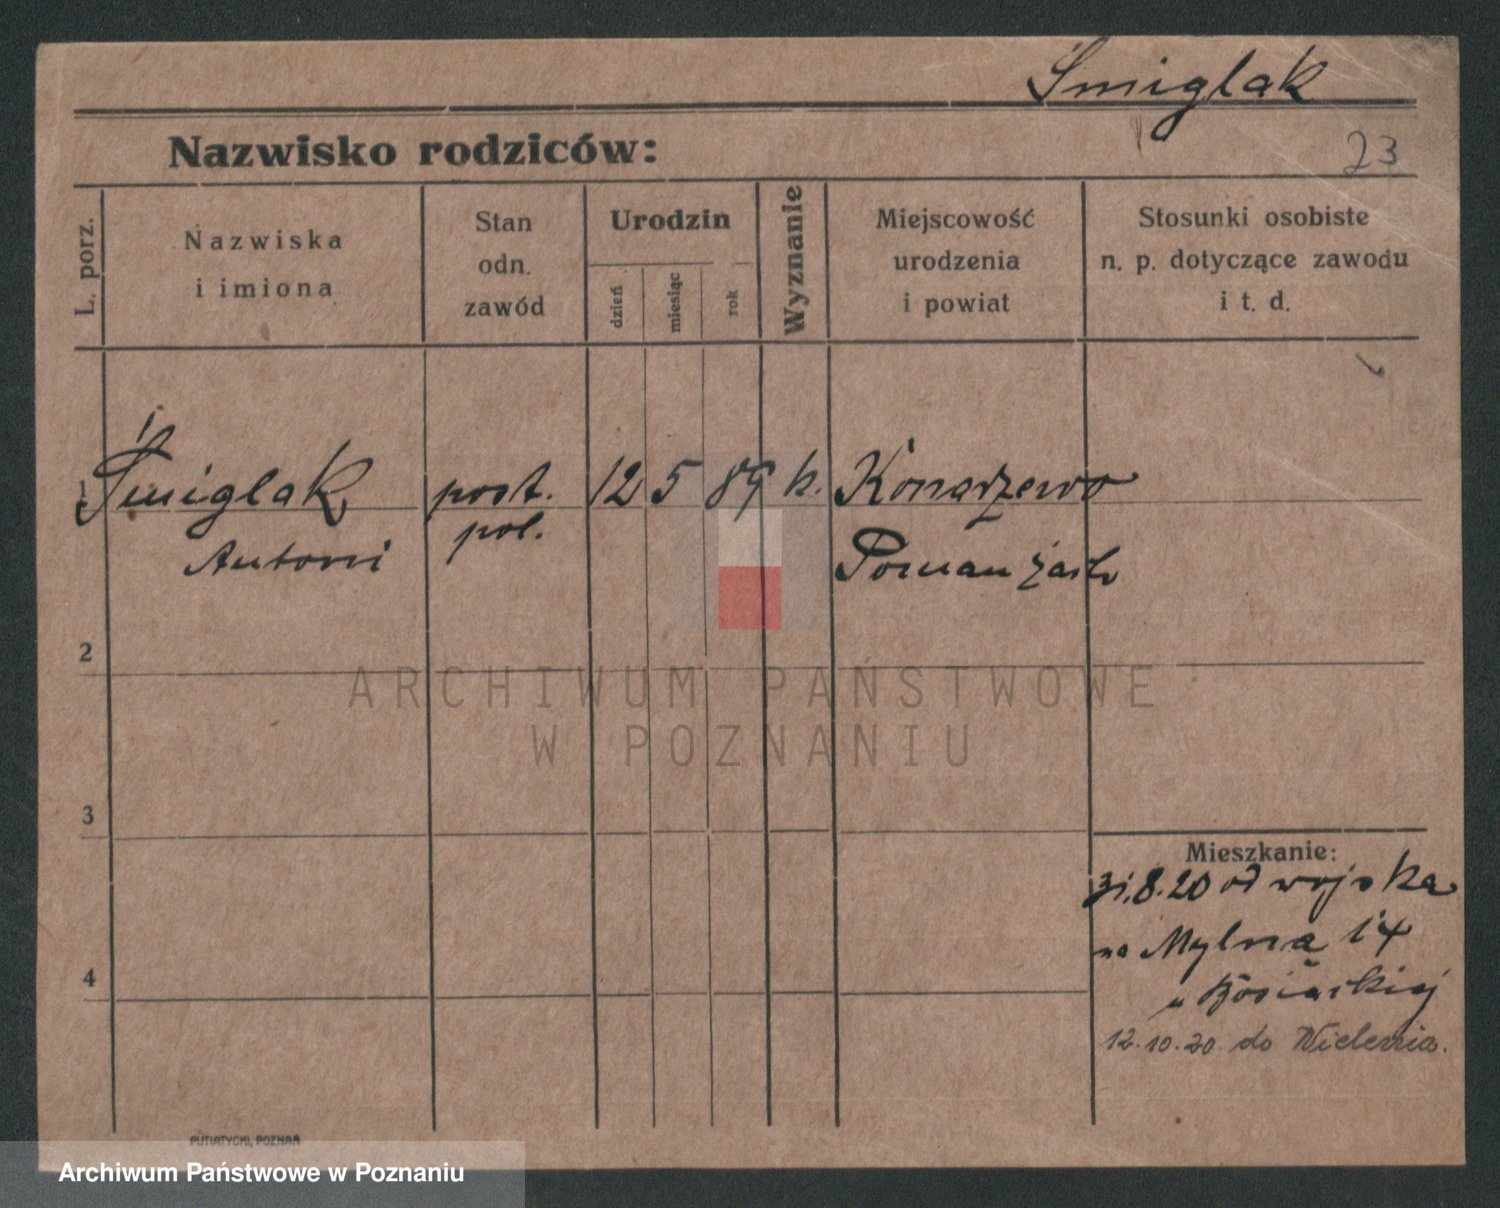 Śmiglak
Nazwisko rodziców:
23
L. porz.
Nazwiska
i imiona
Stan
odn.
zawód
Urodzin
dzień
miesiąc
rok
Wyznanie
Miejscowość
urodzenia
i powiat
Stosunki osobiste
n. p. dotyczące zawodu
i t. d.
1 Śmiglak post. 12 5 89 k. Konarzewo
Antoni pol. Poznań zach
2
ARCHIWUM PAŃSTWOWE
W POZNANIU
3
Mieszkanie:
31.8.20 od wojska
na Mylną 14
u
4
12.10.20. do Wielenia.
PUTIATYCKI, POZNAŃ
Archiwum Państwowe w Poznaniu